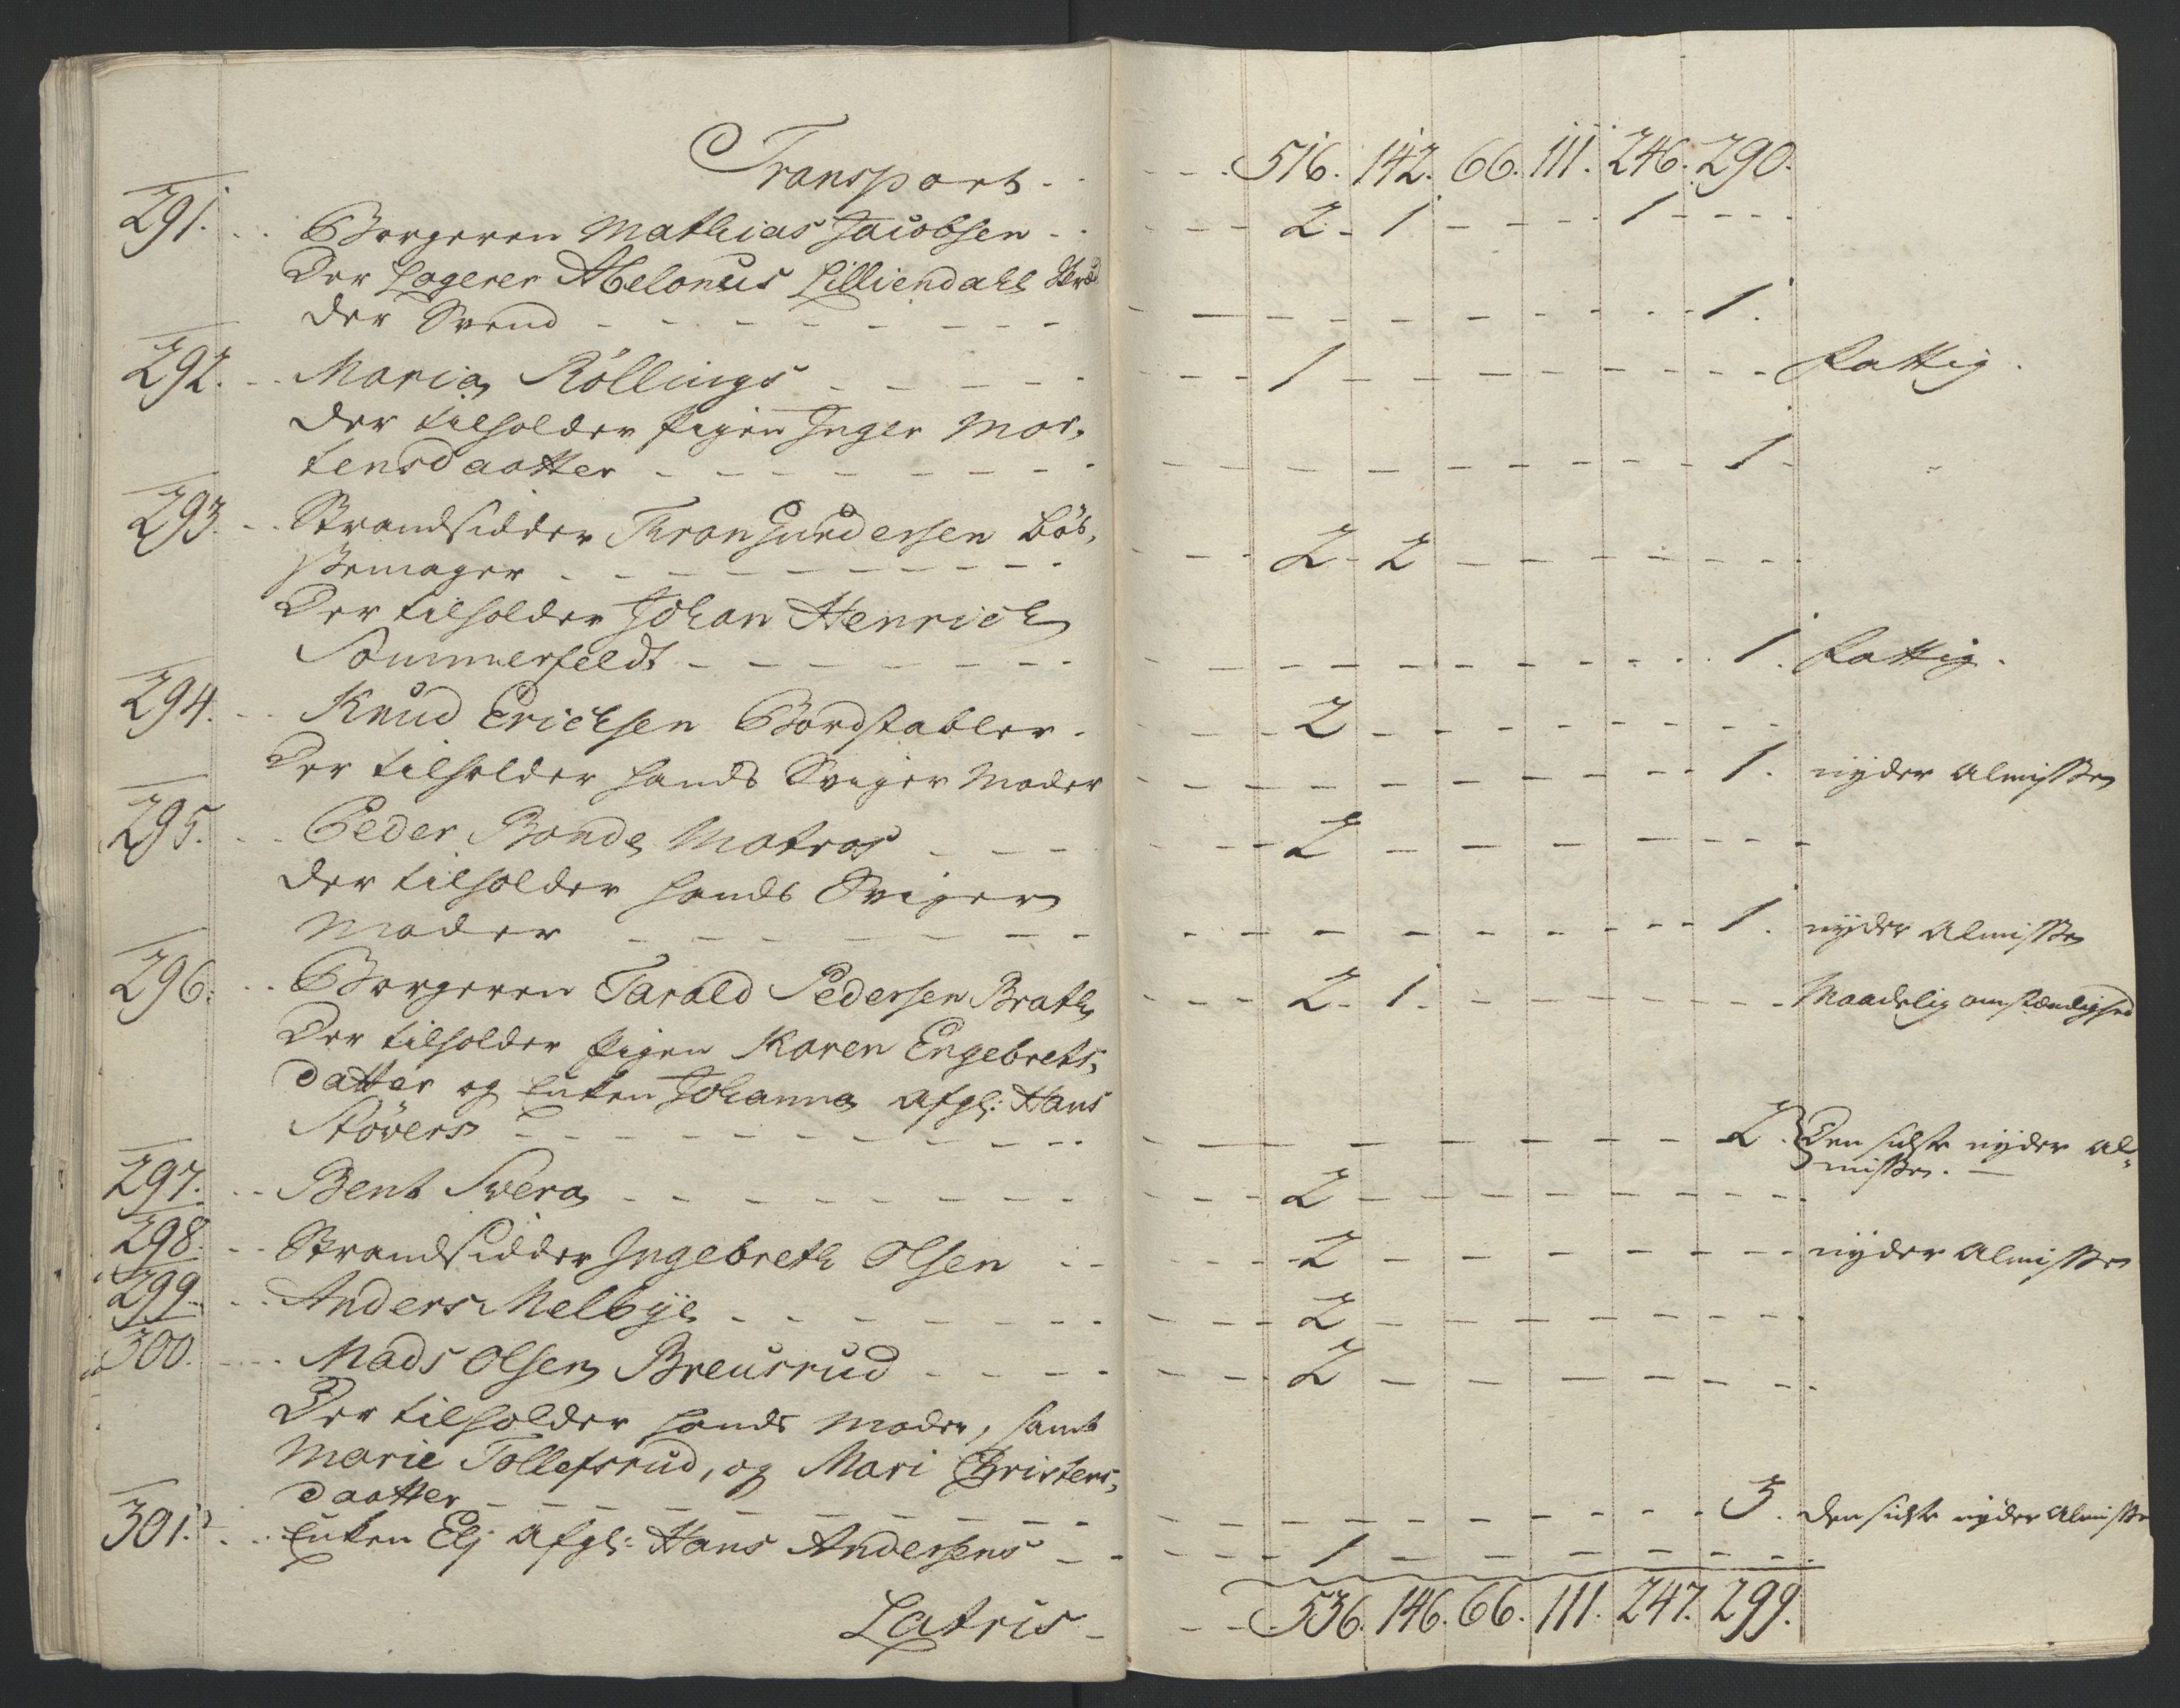 Transport - - - - - 516. 142. 66. 111. 246. 290.
291. - - Borgeren Mathias Jacobsen - - - - - 2 - 1 - - - - 1 - - - -
Der Logerer Abelonus Lilliendahl Skræd
der Svend - - - - - - - - - 1.
292. - - Maria Röllings - - - - - 1 - - - - - - Fattig.
der tilholder Pigen Inger Mor,
tensdaatter - - - - - - - - 1 -
293. - - Strandsidder Thron Gundersen Bös,
semager - - - - - - - 2 - 2 - - - - - -
Der tilholder Johan Henrich
Sommerfeldt - - - - - - - - 1. Fattig.
294. - - Knud Erichsen Bordstabler - - - - 2 - - - - - -
Der tilholder hands Sviger Moder - - - - - - 1. nyder Almisse
295. - - Peder Bonde Matros - - - - - 2 - - - - - -
der tilholder hands Sviger
Moder - - - - - - - - 1. nyder Almisse
296. - - Borgeren Tarald Pedersen Brath - - - 2 - 1. - - - - - Maadelig omstændighed
Der tilholder Pigen Karen Engebrets,
datter og Enken Johanna Afgl: Hans
Stövers - - - - - - - - - 2. Den sidste nyder Al=
misse. -
297. - - Bent Svera - - - - - - - 2 - - - - - -
298. - - Strandsidder Ingebreth Olsen - - - - - 2 - - - - - - nyder Almisse
299. - - Anders Melbye - - - - - - - 2 - - - - - -
300. - - Mads Olsen Breusrud - - - - - - 2 - - - - - -
Der tilholder hands Moder, samt
Marie Tollefsrud, og Mari Christens,
daatter - - - - - - - - - 3. den sidste nyder Almisse
301. - - Enken Elj Afgl: Hans Andersens - - - - 1 - - - - - -
Latris - - - - 536. 146. 66. 111. 247. 299.